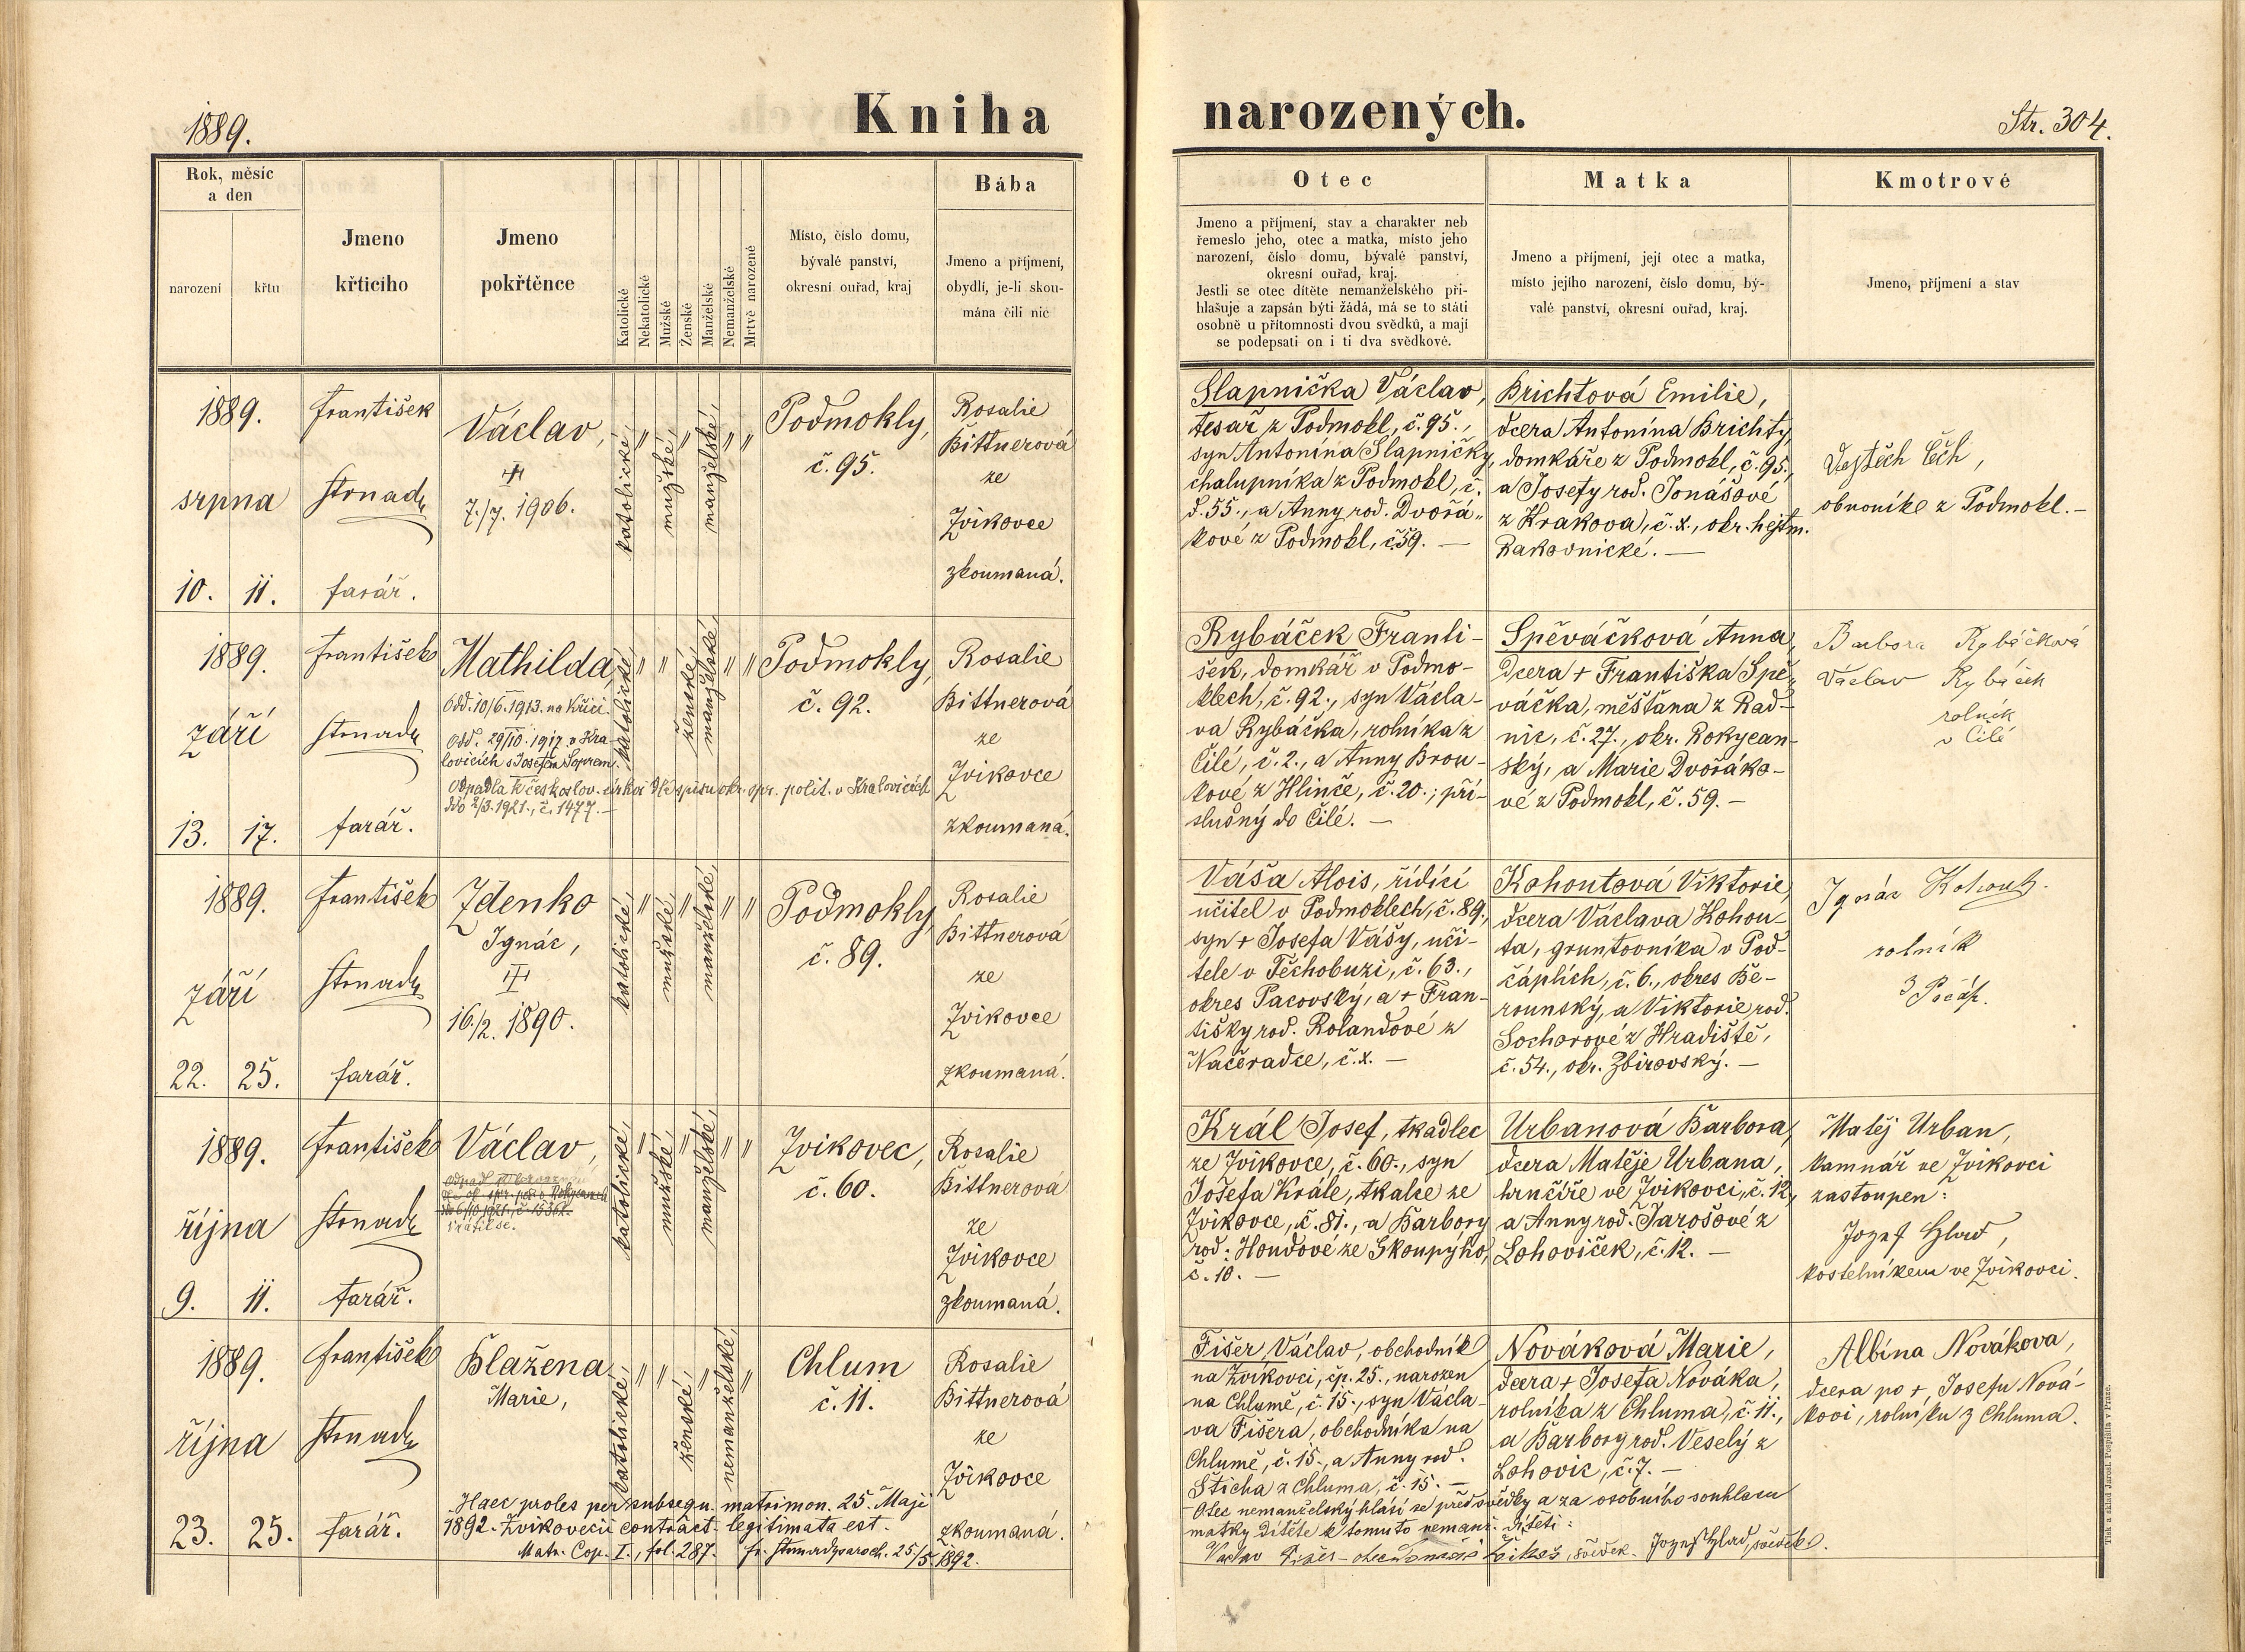 1889.
Kniha
narozených.
Str. 304.
Rok, měsíc
a den
narození
křtu
Jmeno
křticího
Jmeno
pokřtěnce
Katolické
Nekatolické
Mužské
Ženské
Manželské
Nemanželské
Mrtvě narozené
Místo, číslo domu,
bývalé panství,
okresní ouřad, kraj
Bába
Jmeno a příjmení,
obydlí, je-li skou-
mána čili nic
Otec
Jmeno a příjmení, stav a charakter neb
řemeslo jeho, otec a matka, místo jeho
narození, číslo domu, bývalé panství,
okresní ouřad, kraj.
Jestli se otec dítěte nemanželského při-
hlašuje a zapsán býti žádá, má se to státi
osobně u přítomnosti dvou svědků, a mají
se podepsati on i ti dva svědkové.
Matka
Jmeno a příjmení, její otec a matka,
místo jejího narození, číslo domu, bý-
valé panství, okresní ouřad, kraj.
Kmotrové
Jmeno, příjmení a stav
1889.
srpna
10. 11.
František
Strnady
farář.
Václav,
7./7. 1906.
katolické,
"
mužské,
"
manželské,
"
"
Podmokly,
č. 95.
Rosalie
Bittnerová
ze
Zvíkovce
zkoumaná.
Slapnička Václav,
tesař z Podmokl, č. 95.,
syn Antonína Slapničky,
chalupníka z Podmokl, č.
d. 55., a Anny rod. Dvořá-
kové z Podmokl, č. 59. —
Brichtová Emilie,
dcera Antonína Brichty,
domkáře z Podmokl, č. 95.,
a Josefy rod. Jonášové
z Krakova, č. x., okr. hejtm.
Rakovnické. —
Vojtěch Čech,
obuvník z Podmokl. —
1889.
září
13. 17.
František
Strnady
farář.
Mathilda,
Odd. 10/6. 1913. na Křici.
Odd. 29/10. 1917. v Kra-
lovicích s Josefem
Odpadla k českoslov. církvi dle spisu okr. spr. polit. v Kralovicích
ddo 2/3. 1921., č. 1477. —
katolické,
"
"
ženské,
manželské,
"
"
Podmokly,
č. 92.
Rosalie
Bittnerová
ze
Zvíkovce
zkoumaná.
Rybáček Franti-
šek, domkář v Podmo-
klech, č. 92., syn Václa-
va Rybáčka, rolníka z
Čilé, č. 2., a Anny Brou-
kové z Hlinče, č. 20.; pří-
slušný do Čilé. —
Spěváčková Anna,
dcera + Františka Spě-
váčka, měšťana z Rad-
nic, č. 27., okr. Rokycan-
ský, a Marie Dvořáko-
vé z Podmokl, č. 59. —
Barbora Rybáčková
Václav Rybáček
rolník
v Čilé
1889.
září
22. 25.
František
Strnady
farář.
Zdenko
Ignác,
16./2. 1890.
katolické,
"
mužské,
"
manželské,
"
"
Podmokly,
č. 89.
Rosalie
Bittnerová
ze
Zvíkovce
zkoumaná.
Váša Alois, řídící
učitel v Podmoklech, č. 89.,
syn + Josefa Vášy, uči-
tele v Těchobuzi, č. 63.,
okres Pacovský, a + Fran-
tišky rod. Rolandové z
Načeradce, č. x. —
Kohoutová Viktorie,
dcera Václava Kohou-
ta, gruntovníka v Pod-
čáplích, č. 6., okres Be-
rounský, a Viktorie rod.
Sochorové z Hradiště,
č. 54., okr. Zbirovský. —
Ignác Kohout.
rolník
1889.
října
9. 11.
František
Strnady
farář.
Václav,
katolické,
"
mužské,
"
manželské,
"
"
Zvíkovec,
č. 60.
Rosalie
Bittnerová
ze
Zvíkovce
zkoumaná.
Král Josef, tkadlec
ze Zvíkovce, č. 60., syn
Josefa Krále, tkalce ze
Zvíkovce, č. 81., a Barbory
rod. Houdové ze Skoupýho,
č. 10. —
Urbanová Barbora,
dcera Matěje Urbana,
hrnčíře ve Zvíkovci, č. 12,
a Anny rod. Jarošové z
Lohoviček, č. 12. —
Matěj Urban,
kamnář ve Zvíkovci
zastoupen:
Jozef Hlad,
kostelníkem ve Zvíkovci.
1889.
října
23. 25.
František
Strnady
farář.
Blažena
Marie,
katolické,
"
"
ženské,
"
nemanželské,
"
Chlum
č. 11.
Rosalie
Bittnerová
ze
Zvíkovce
zkoumaná.
Haec proles per subsequ. matrimon. 25. Maji
1892. Zvikovecii contract. legitimata est.
Matr. Cop. I., fol. 287. Fr. Strnady paroch. 25/5. 1892.
Fišer Václav, obchodník
na Zvíkovci, čp. 25., narozen
na Chlumě, č. 15., syn Václa-
va Fišera, obchodníka na
Chlumě, č. 15., a Anny rod.
Šticha z Chluma, č. 15. —
Nováková Marie,
dcera + Josefa Nováka,
rolníka z Chluma, č. 11.,
a Barbory rod. Veselý z
Lohovic, č. 7. —
Albína Nováková,
dcera po +, Josefu Nová-
kovi, rolníku z Chluma.
Otec nemanželský hlásí se před svědky a za osobního souhlasu
matky dítěte k tomuto nemanž. dítěti:
Václav Fišer – otec Tomáš svědek. Jozef Hlad, svědek.
Tisk a sklad Jarosl. Pospíšila v Praze.